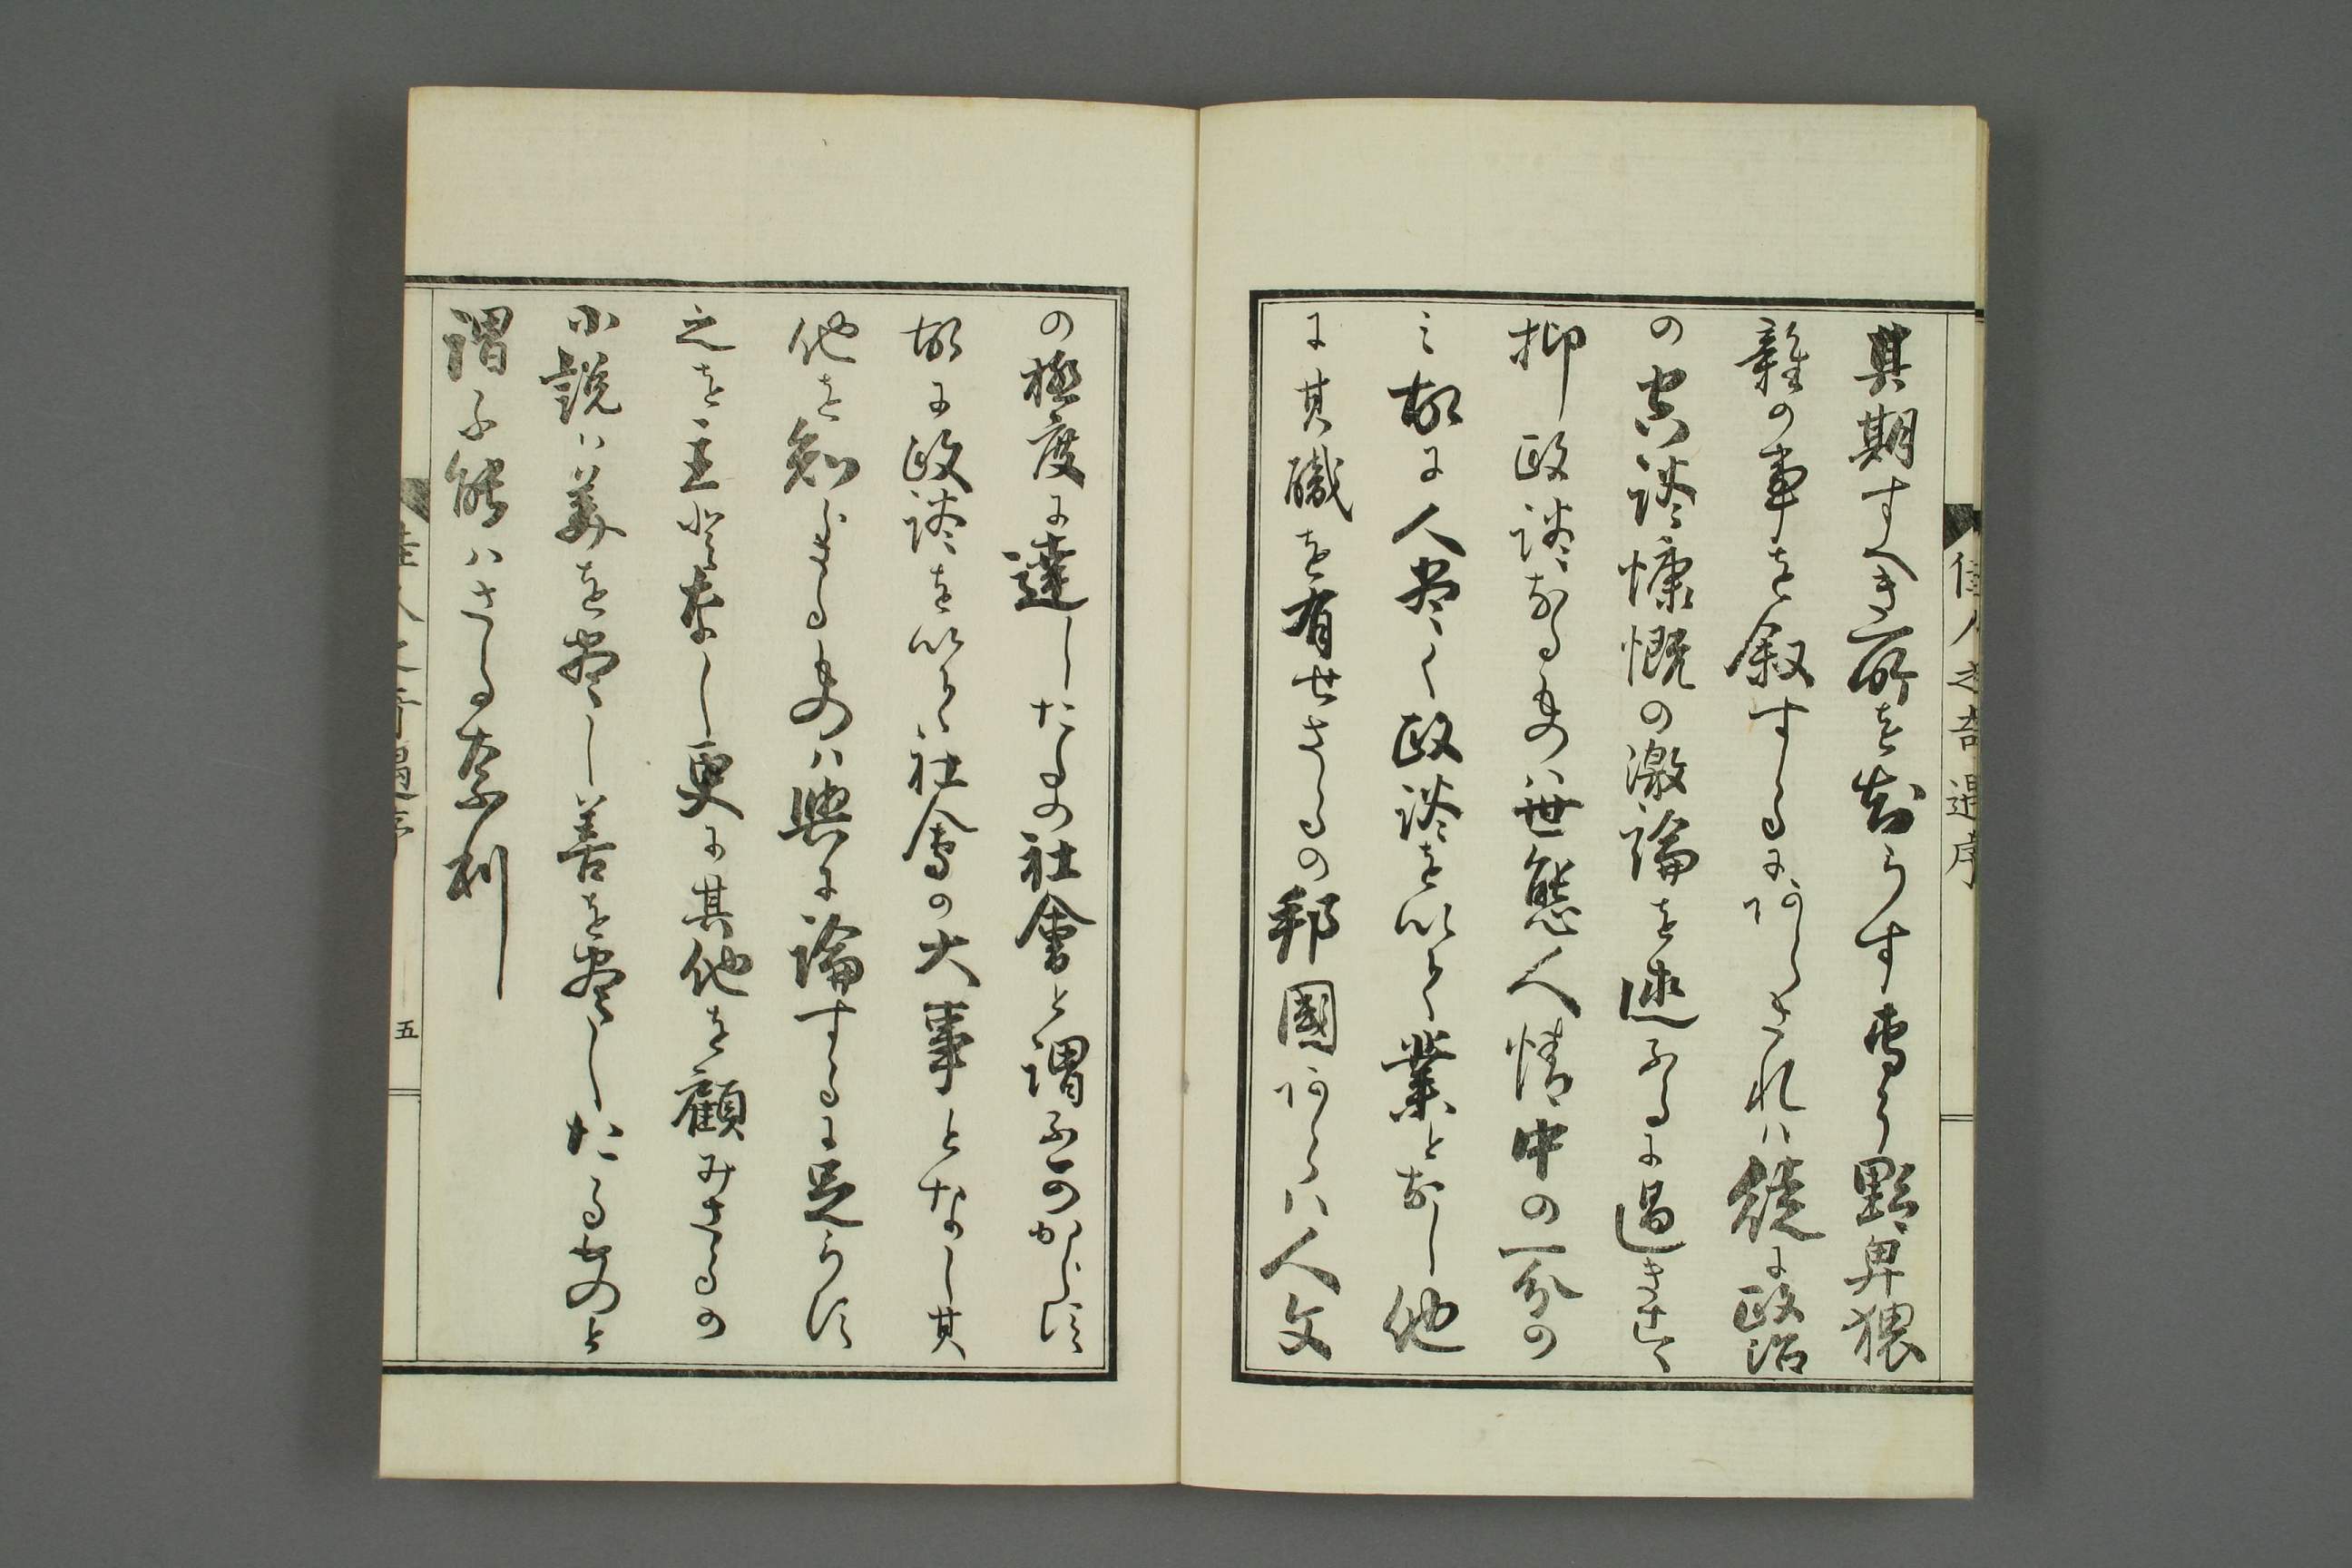 佳人之奇遇序
其期すへき所を知らす専ら黠卑猥
雜の事を叙するにあらされハ徒に政治
の空談慷慨の激論を述ふるに過きす
抑政談なるものハ世態人情中の一分の
ミ故に人尽く政談を以て業となし他
に其職を有せさるの邦國あらハ人文
の極度に達したるの社會と謂ふ可からす
故に政談を以て社會の大事となし其
他を知らさるものハ與に論するに足らす
之を主張なし更に其他を顧みさるの
小説ハ美を尽し善を尽したるものと
謂ふ能ハさる奈利
佳人之奇遇序
五